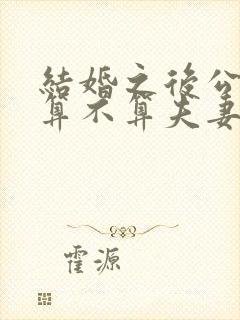 結婚之後公
算不算夫妻
霍源